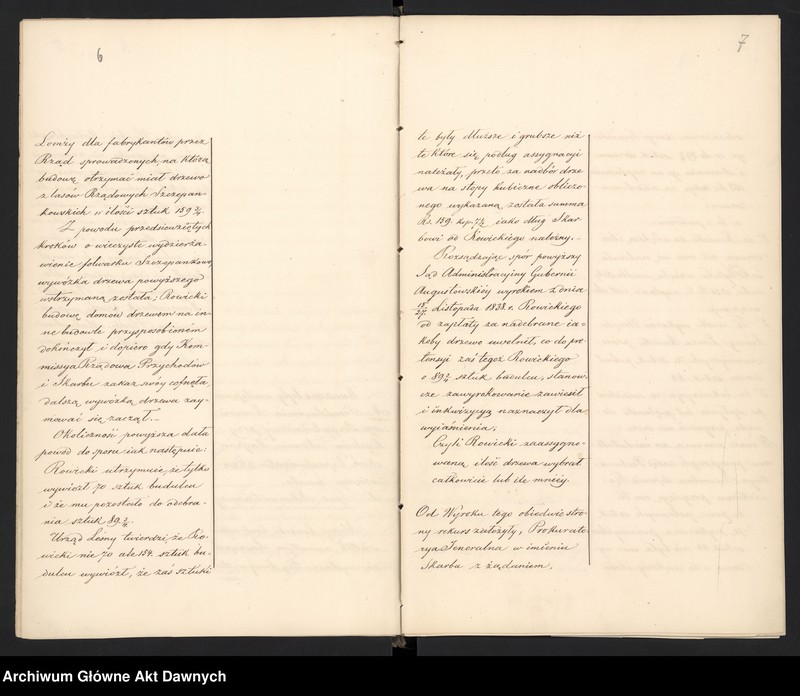 6
Łomży dla fabrykantów przez
Rząd sprowadzonych, na którą
budowę otrzymać miał drzewo
z lasów Rządowych Szczepan-
kowskich w ilości sztuk 159 2/4.
Z powodu przedsięwziętych
kroków o wieczyste wydzierża-
wienie folwarku Szczepankowo,
wywózka drzewa powyższego
wstrzymaną została; Rowicki
budowę domów drzewem na in-
ne budowle przysposobioném
dokończył i dopiero gdy Kom-
missya Rządowa Przychodów
i Skarbu zakaz swój cofnęła,
dalszą wywózką drzewa zay-
mować się zaczął.
Okoliczność powyższa dała
powód do sporu jak następuie:
Rowicki utrzymuie, że tylko
wywiózł 70 sztuk budulcu
i że mu pozostało do odebra-
nia sztuk 89 2/4.
Urząd Leśny twierdzi, że Ro-
wicki nie 70 ale 154. sztuk bu-
dulcu wywiózł, że zaś sztuki
7
te były dłuższe i grubsze niż
te które się podług assygnacyi
należały, przeto za nadbór drze-
wa na stopy kubiczne obliczo-
nego wykazaną została summa
Rs. 159. kop. 7½ iako dług Skar-
bowi od Rowickiego należny.
Rozsądzając spór powyższy
Sąd Administracyjny Gubernii
Augustowskiéy wyrokiem z dnia
15/27 Listopada 1838. r. Rowickiego
od zapłaty za nadebrane ia-
koby drzewo uwolnił, co do pre-
tensyi zaś tegoż Rowickiego
o 89 2/4 sztuk budulcu, stanow-
cze zawyrokowanie zawiesił
i inkwizycyą naznaczył dla
wyiaśnienia;
Czyli Rowicki zaassygno-
waną ilość drzewa wybrał
całkowicie lub ile mniéy.
Od Wyroku tego obiedwie stro-
ny rekurs założyły, Prokurato-
rya Jeneralna w imieniu
Skarbu z żądaniem,
Archiwum Główne Akt Dawnych